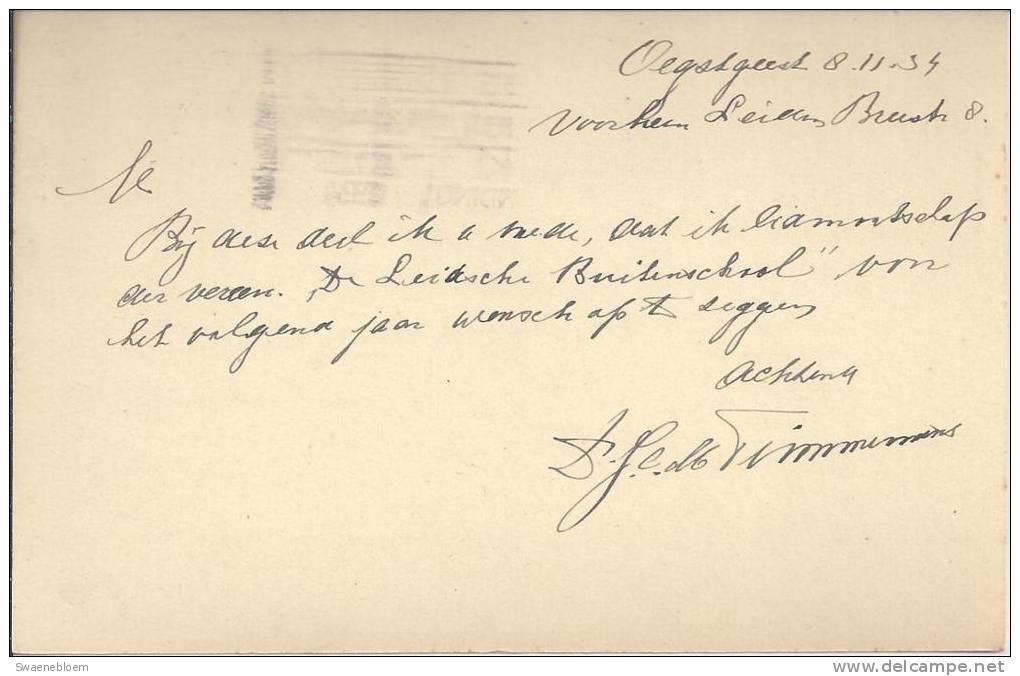 Oegstgeest 8.11.34
voorheen Leiden Breestr 8.
Bij deze deel ik u mede, dat ik lidmaatschap
der vereen. "De Leidsche Buitenschool" voor
het volgend jaar wensch op te zeggen
Achtend
Timmermans
Swaenebloem
www.delcampe.net